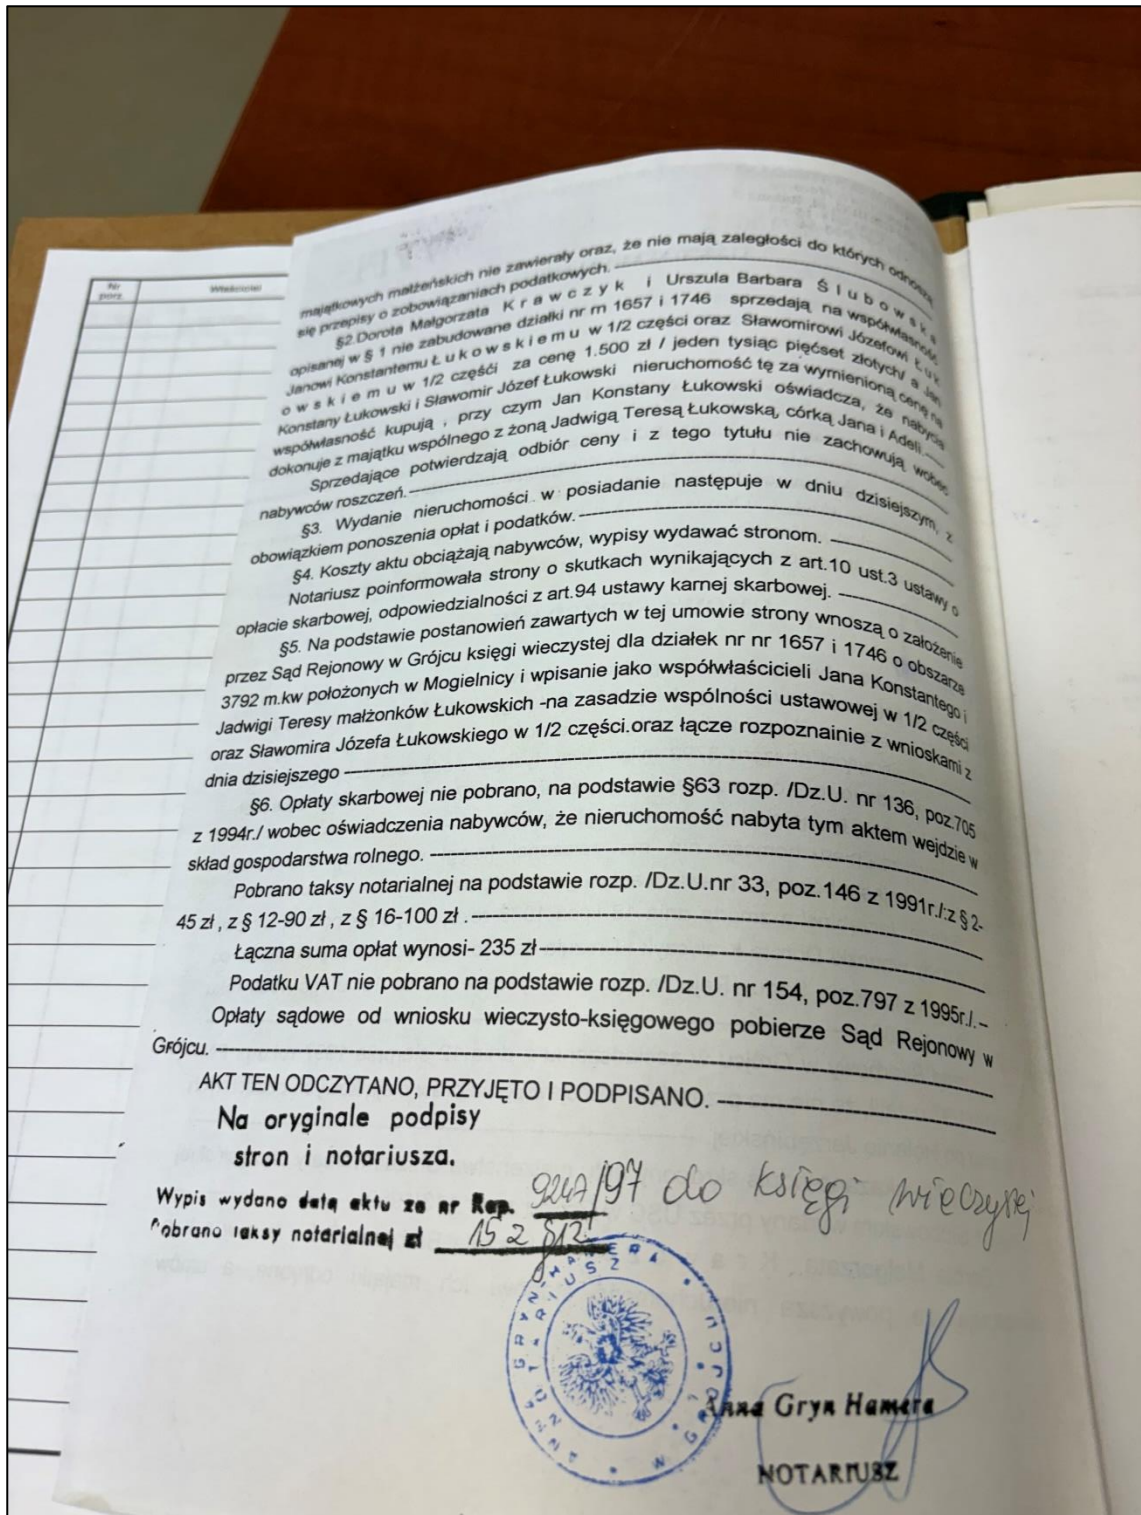 Nr porz.
Właściciel
majątkowych małżeńskich nie zawierały oraz, że nie mają zaległości do których odnoszą
się przepisy o zobowiązaniach podatkowych.
§2.Dorota Małgorzata K r a w c z y k i Urszula Barbara Ś l u b o w s k a
opisanej w § 1 nie zabudowane działki nr rn 1657 i 1746 sprzedają na współwłasność
Janowi Konstantemu Ł u k o w s k i e m u w 1/2 części oraz Sławomirowi Józefowi Ł u k
o w s k i e m u w 1/2 częśći za cenę 1.500 zł / jeden tysiąc pięćset złotych/ a Jan
Konstany Łukowski i Sławomir Józef Łukowski nieruchomość tę za wymienioną cenę na
współwłasność kupują , przy czym Jan Konstany Łukowski oświadcza, że nabycia
dokonuje z majątku wspólnego z żoną Jadwigą Teresą Łukowską, córką Jana i Adeli.
Sprzedające potwierdzają odbiór ceny i z tego tytułu nie zachowują wobec
nabywców roszczeń.
§3. Wydanie nieruchomości w posiadanie następuje w dniu dzisiejszym, z
obowiązkiem ponoszenia opłat i podatków.
§4. Koszty aktu obciążają nabywców, wypisy wydawać stronom.
Notariusz poinformowała strony o skutkach wynikających z art.10 ust.3 ustawy o
opłacie skarbowej, odpowiedzialności z art.94 ustawy karnej skarbowej.
§5. Na podstawie postanowień zawartych w tej umowie strony wnoszą o założenie
przez Sąd Rejonowy w Grójcu księgi wieczystej dla działek nr nr 1657 i 1746 o obszarze
3792 m.kw położonych w Mogielnicy i wpisanie jako współwłaścicieli Jana Konstantego i
Jadwigi Teresy małżonków Łukowskich -na zasadzie wspólności ustawowej w 1/2 części
oraz Sławomira Józefa Łukowskiego w 1/2 części.oraz łącze rozpoznainie z wnioskami z
dnia dzisiejszego
§6. Opłaty skarbowej nie pobrano, na podstawie §63 rozp. /Dz.U. nr 136, poz.705
z 1994r./ wobec oświadczenia nabywców, że nieruchomość nabyta tym aktem wejdzie w
skład gospodarstwa rolnego.
Pobrano taksy notarialnej na podstawie rozp. /Dz.U.nr 33, poz.146 z 1991r./:z § 2-
45 zł , z § 12-90 zł , z § 16-100 zł .
Łączna suma opłat wynosi- 235 zł
Podatku VAT nie pobrano na podstawie rozp. /Dz.U. nr 154, poz.797 z 1995r./.
Opłaty sądowe od wniosku wieczysto-księgowego pobierze Sąd Rejonowy w
Grójcu.
AKT TEN ODCZYTANO, PRZYJĘTO I PODPISANO.
Na oryginale podpisy
stron i notariusza.
Wypis wydano datą aktu za nr Rep. /97 do księgi wieczystej
Pobrano taksy notarialnej zł 15 z §12
ANNA GRYN-HAMERA
NOTARIUSZ
W GRÓJCU
Anna Gryn Hamera
NOTARIUSZ